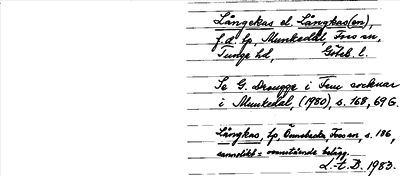 Långekas el. Långkas(en),
f.d. lp, Munkedal, Foss sn,
Tunge hd, Göteb. l.
Se G. Drougge i Fem socknar
i Munkedal, (1980), s. 168, 696.
Långkas, lp, Foss sn, s. 186,
sannolikt = ovanstående belägg.
L-t. B. 1983.